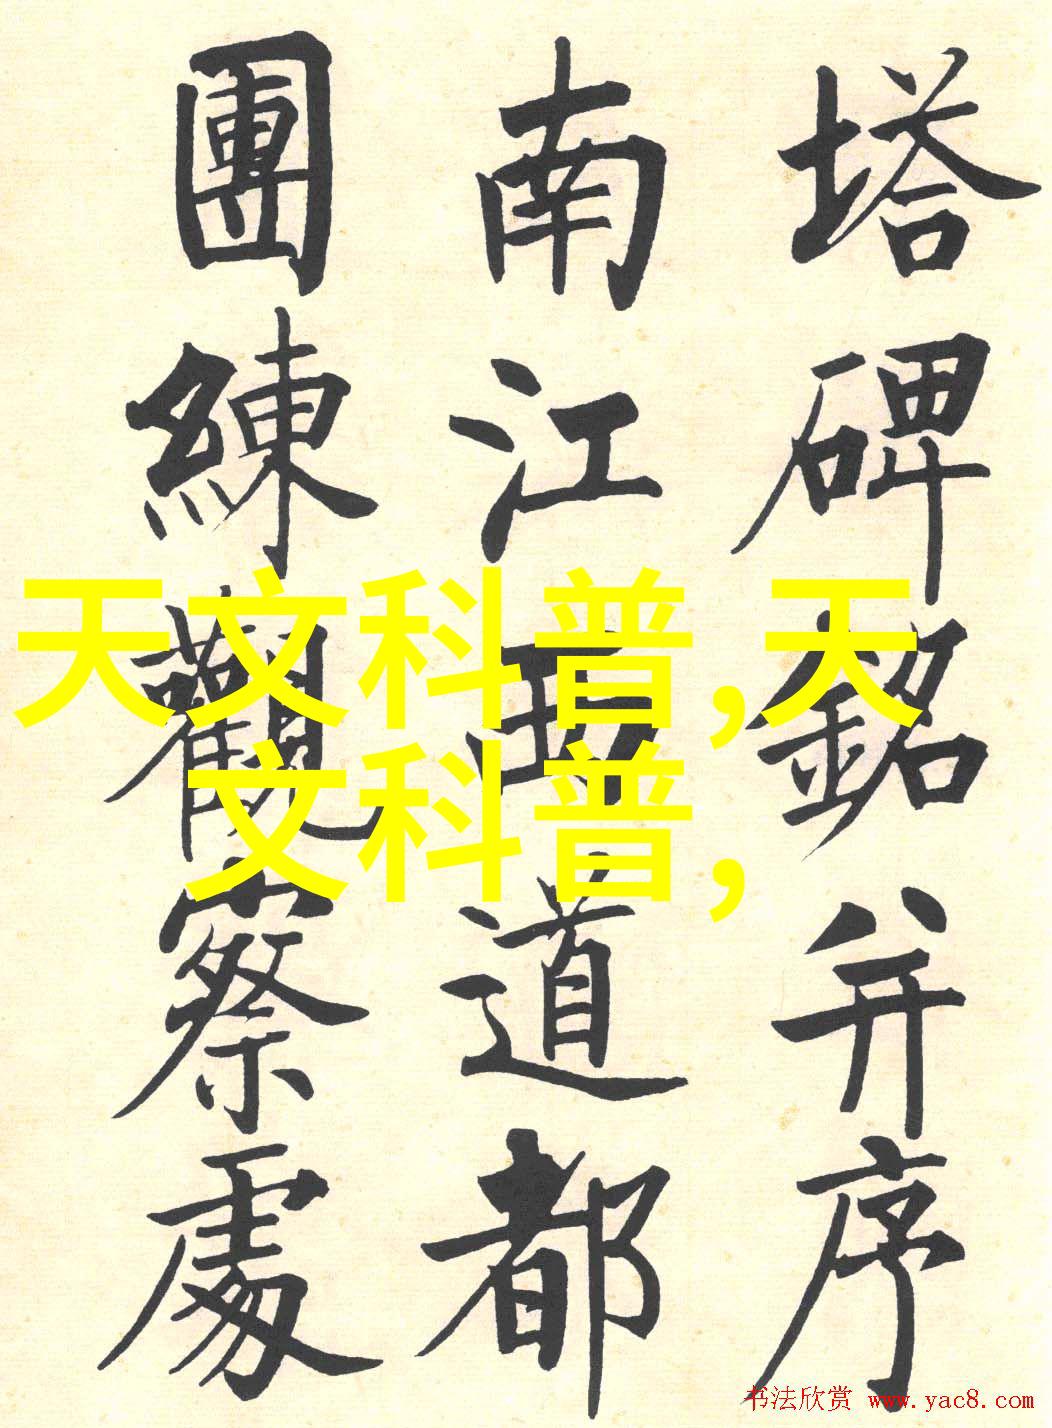 塔碑銘并序
南江西道都
團練觀察處
天文科普,天
文科普,
书法欣赏 www.yac8.com